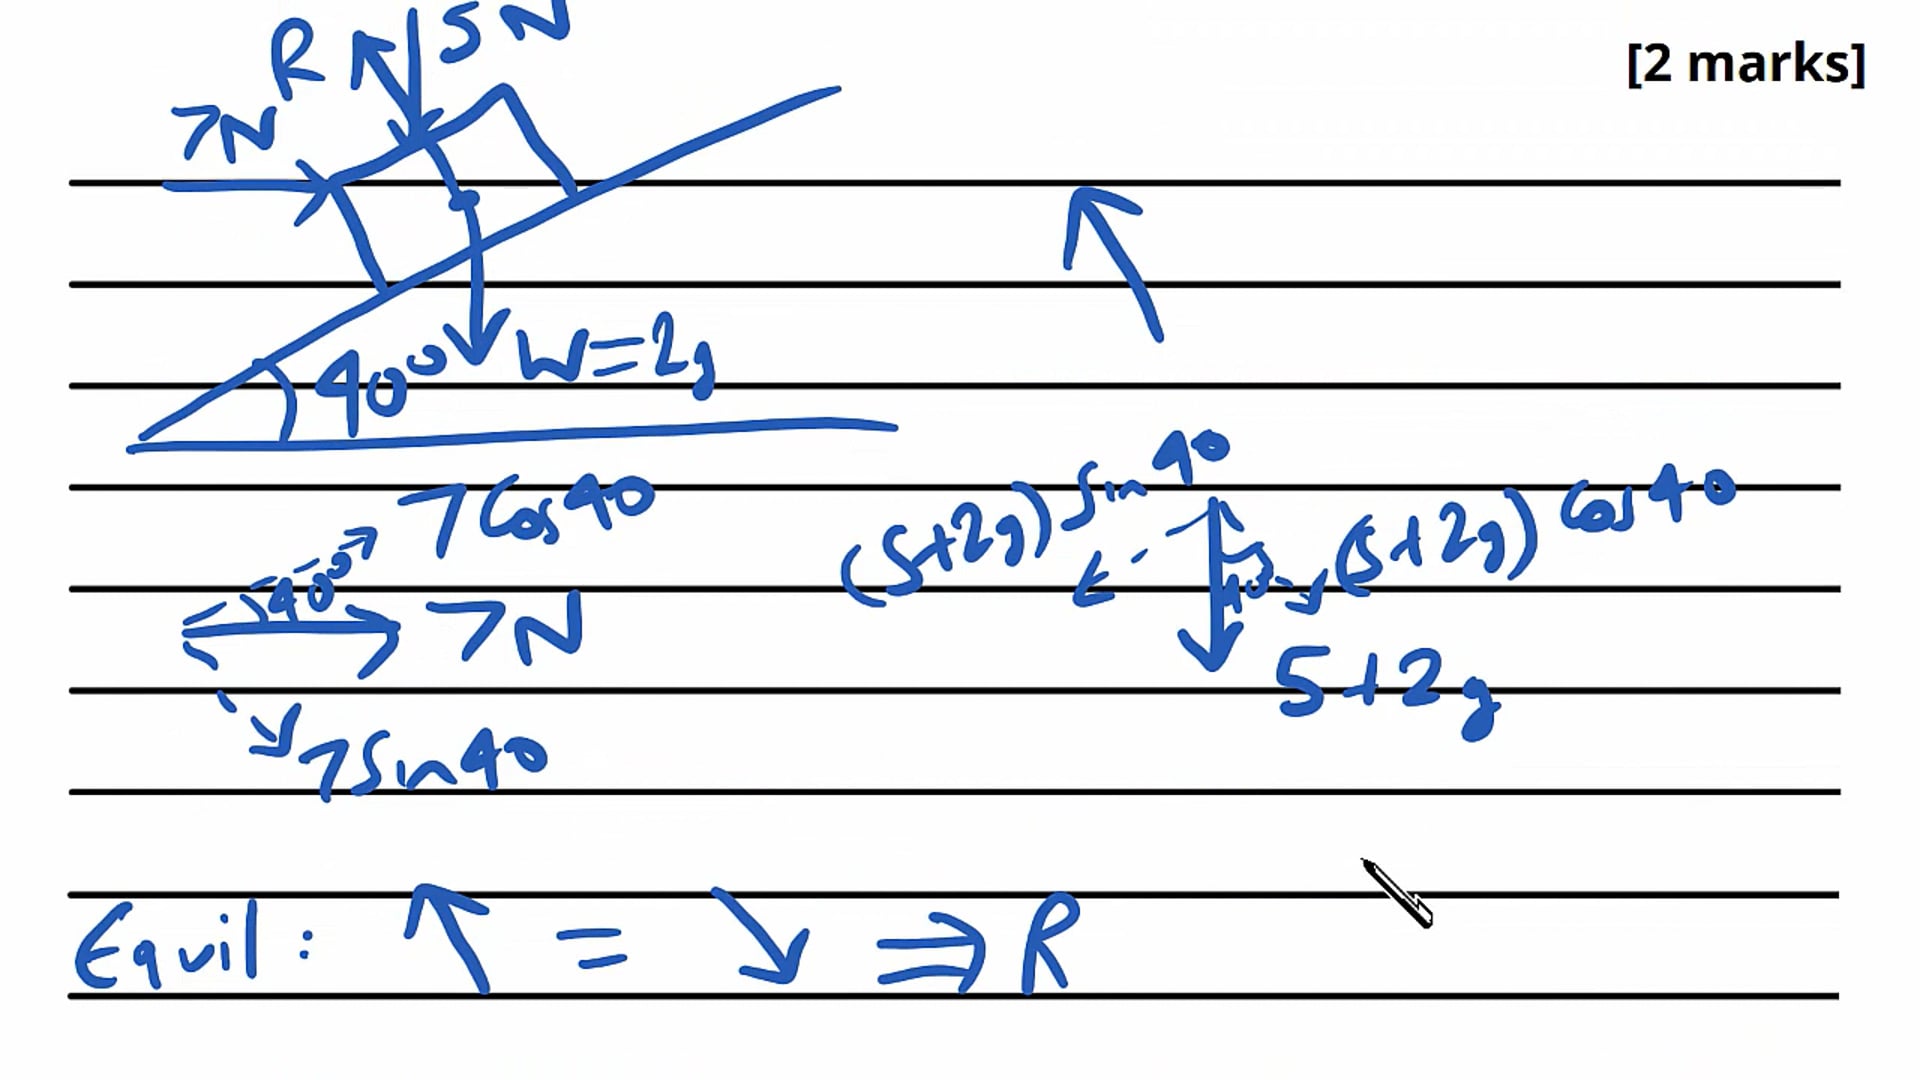 [2 marks]
R
5N
7N
40° W=2g
7Cos40
40°
7N
7Sin40
(5+2g)Sin40
(5+2g)Cos40
40
5+2g
Equil: ↖ = ↘ ⇒ R